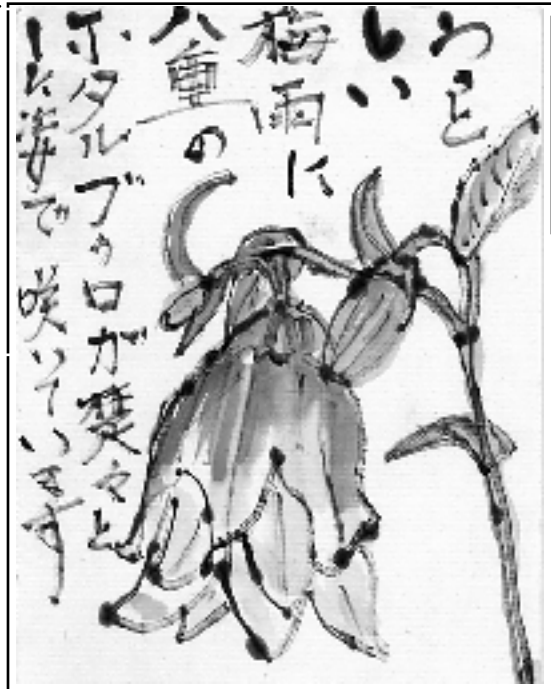 うっと
しい
梅雨に
八重の
ホタルブクロが楚々と
した姿で咲いています